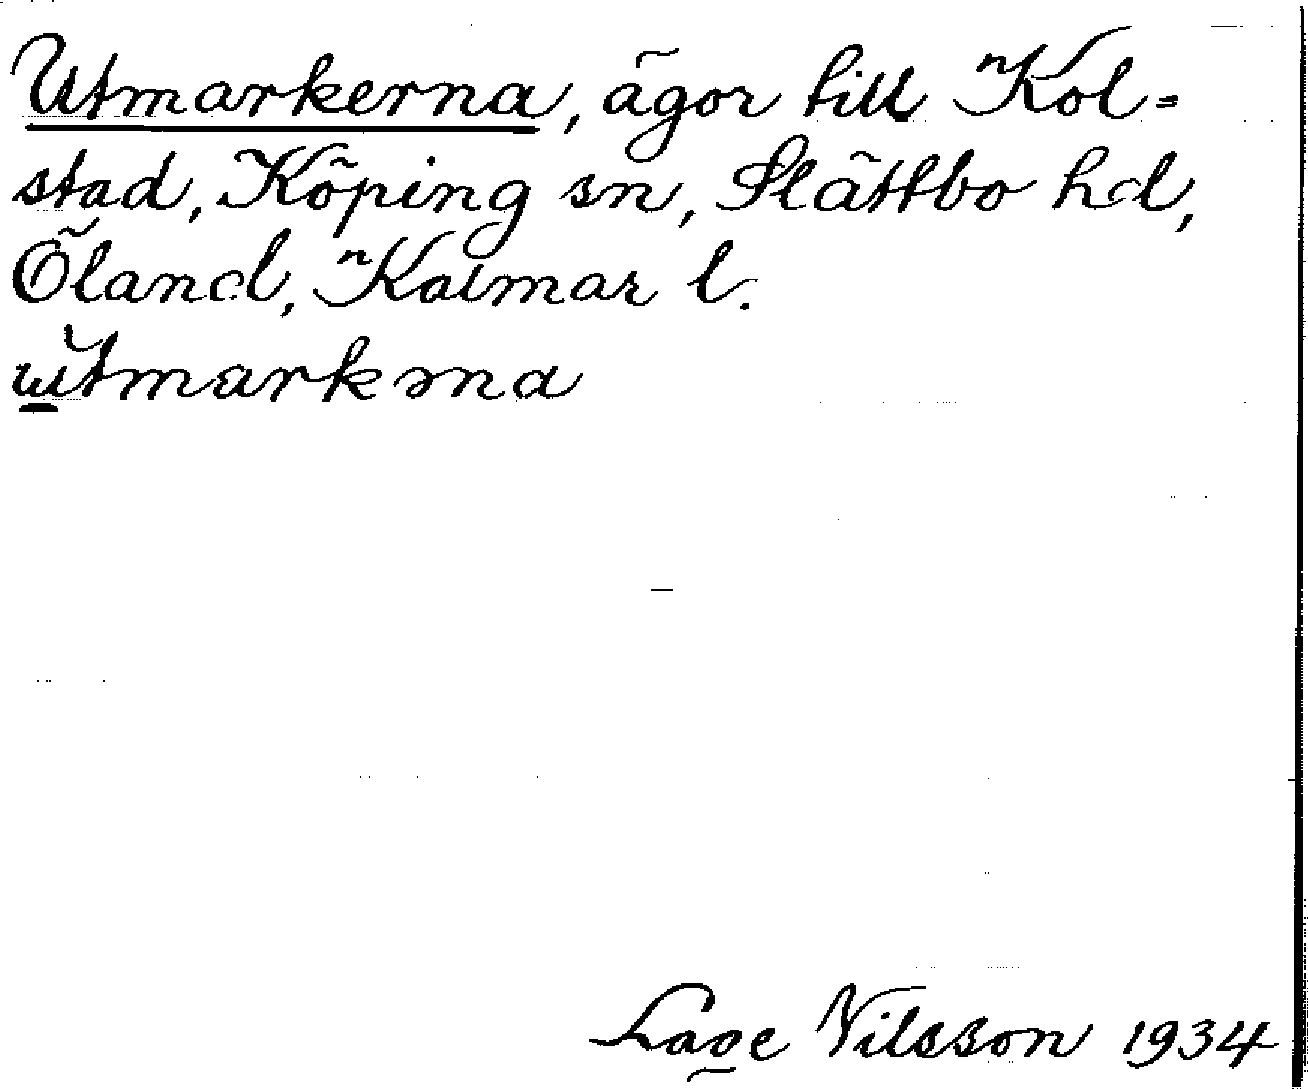 Utmarkerna, ägor till Kol=
stad, Köping sn, Slättbo hd,
Öland, Kalmar l.
utmarkəna
Lage Nilsson 1934